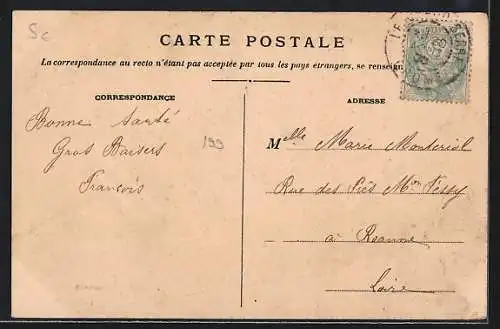 5c
CARTE POSTALE
La correspondance au recto n'étant pas acceptée par tous les pays étrangers, se renseign
CORRESPONDANCE
ADRESSE
Bonne santé
Gros Baisers
François
199
Melle Marie
Rue des
à Roanne
Loire